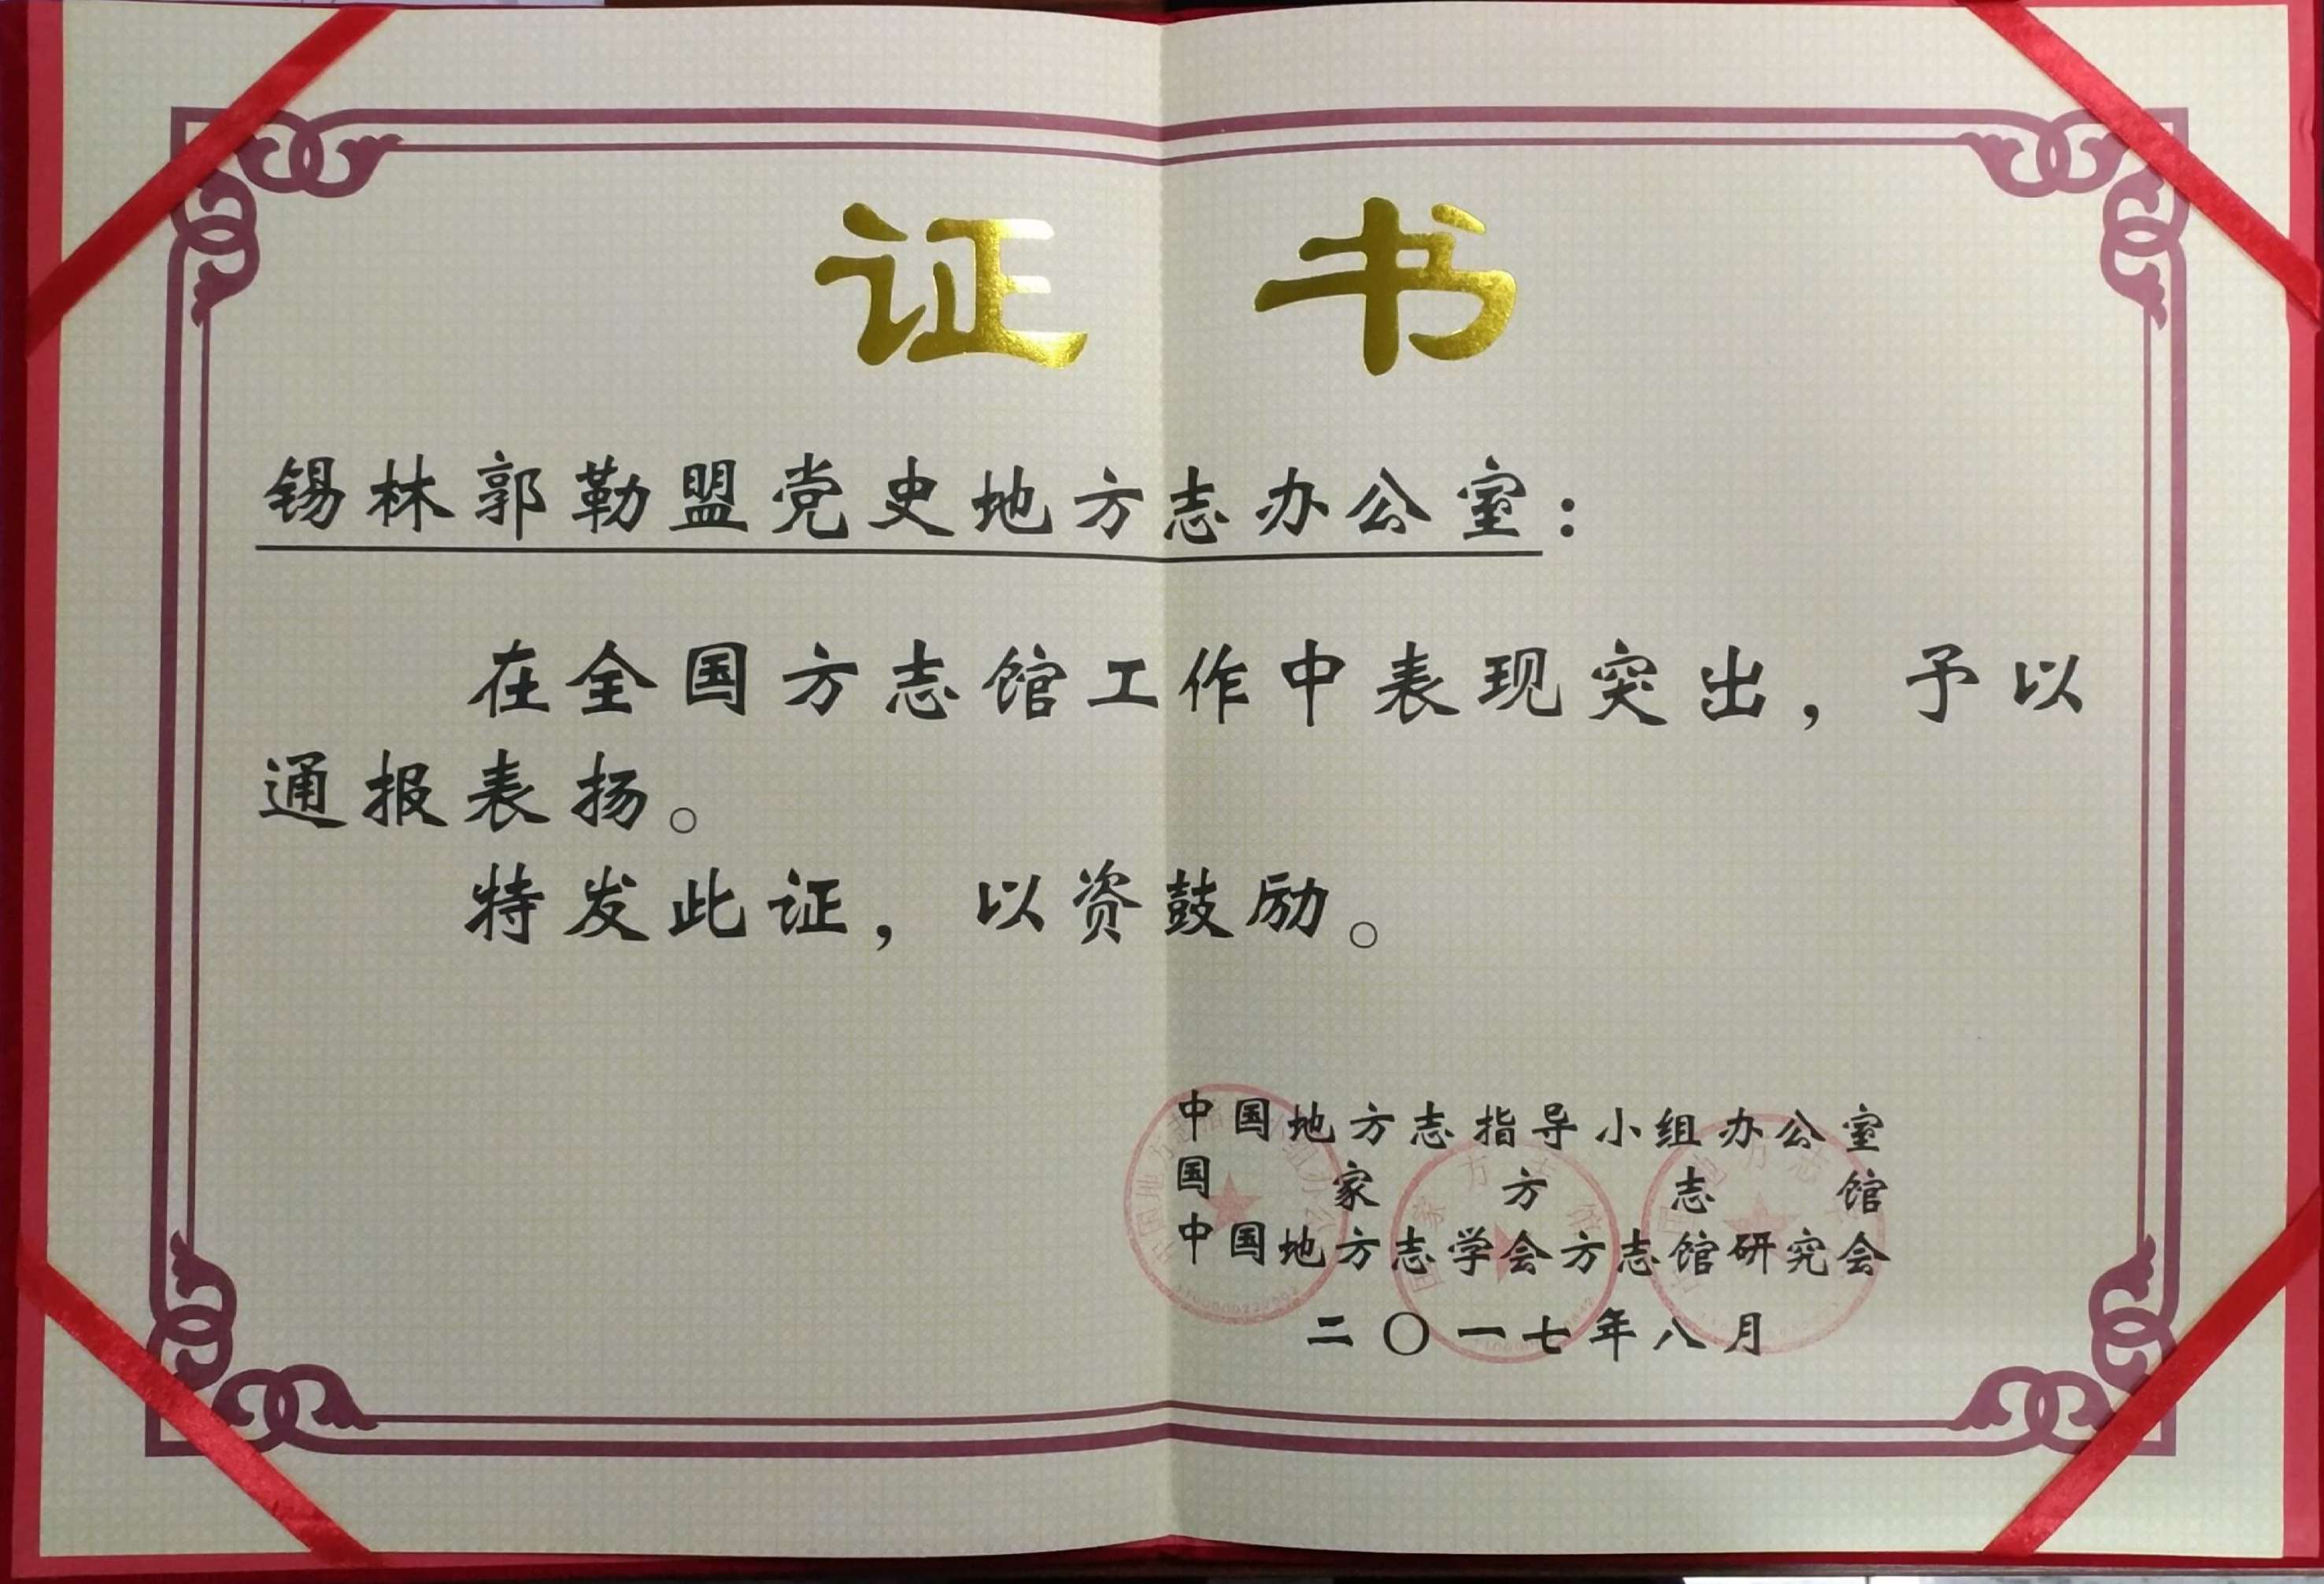 证书
锡林郭勒盟党史地方志办公室：
在全国方志馆工作中表现突出，予以
通报表扬。
特发此证，以资鼓励。
中国地方志指导小组办公室
国家方志馆
中国地方志学会方志馆研究会
二〇一七年八月